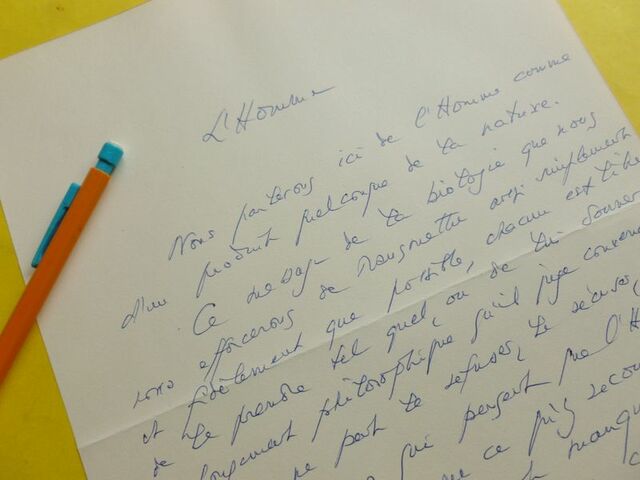 L'Homme
Nous parlerons ici de l'Homme comme
d'un produit quelconque de la nature.
Ce message de la biologie que nous
nous efforcerons de transmettre aussi simplement
et fidèlement que possible, chacun est libre
de le prendre tel quel, ou de lui donner
philosophique qu'il juge
ne peut le refuser, le récuser,
qui pensent que l'H
ce
manqu